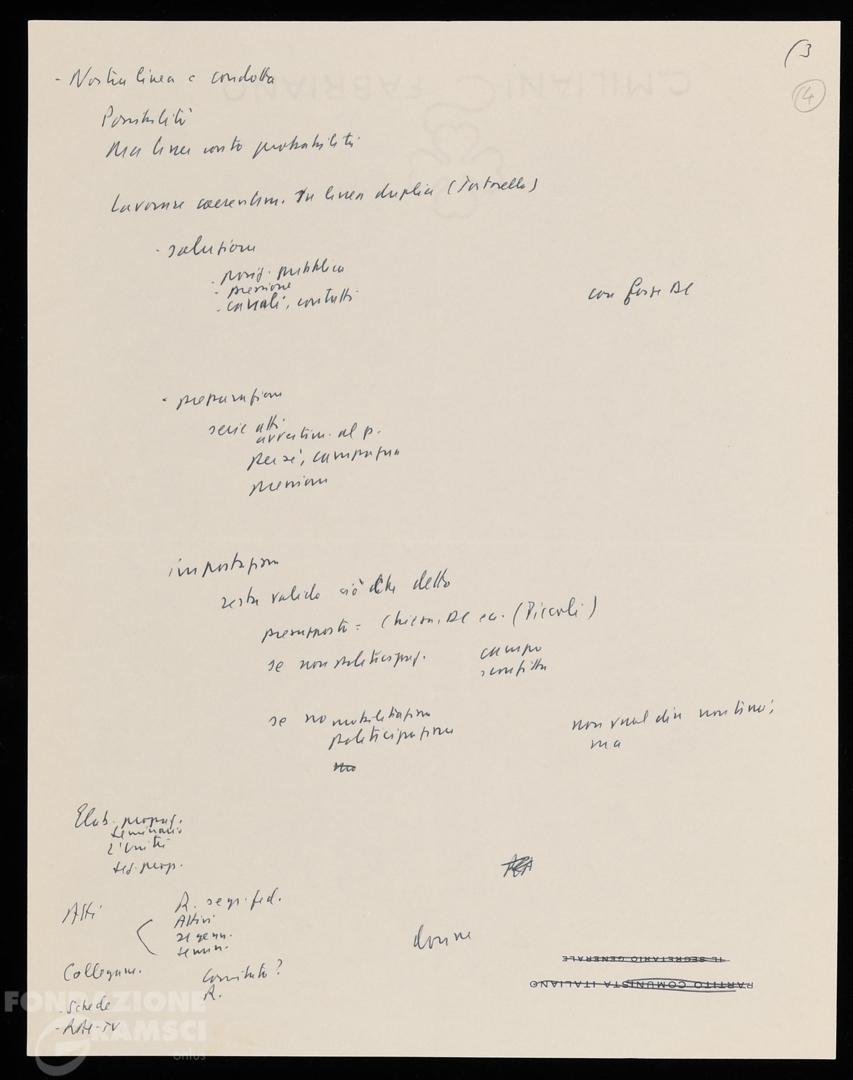 (3
14
C. MILIANI FABRIANO
- Nostra linea e condotta
Possibilità
Ma linea conto probabilità
Lavorare coerentem. su linea duplice (Tortorella)
- soluzione
- posiz. pubblica
- pressione
- canali, contatti
con forze DC
- preparazione
serie atti
avvertim. al p.
perciò, campagna
pressioni
impostazione
resta valido ciò che detto
presupposto = Chiesa, DC ecc. (Piccoli)
se non politicizzaz.
campo
sconfitta
se no mobilitazione
politicizzazione
non vuol dire non lino;
ma
Elab. propag.
seminario
l'Unità
sez. prop.
Atti
R. segr. fed.
Attivi
28 genn.
semin.
donne
Collegam.
Comitato?
R.
- Schede
- RAI-TV
IL SEGRETARIO GENERALE
PARTITO COMUNISTA ITALIANO
FONDAZIONE
GRAMSCI
onlus